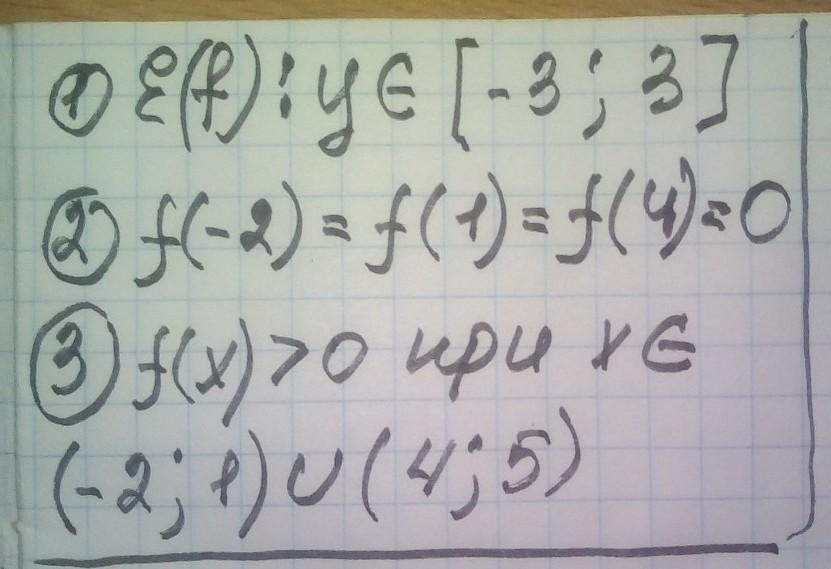 ① E(f): y ∈ [-3; 3]
② f(-2) = f(1) = f(4) = 0
③ f(x) > 0 при x ∈
(-2; 1) ∪ (4; 5)